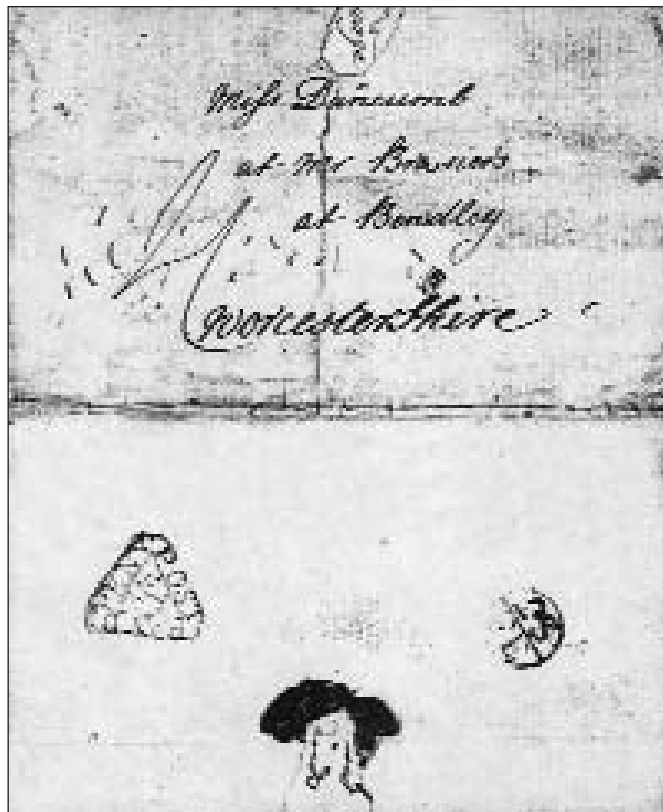 Miss Duncumb
at Mr Brasier's
at Bewdley
Worcestershire